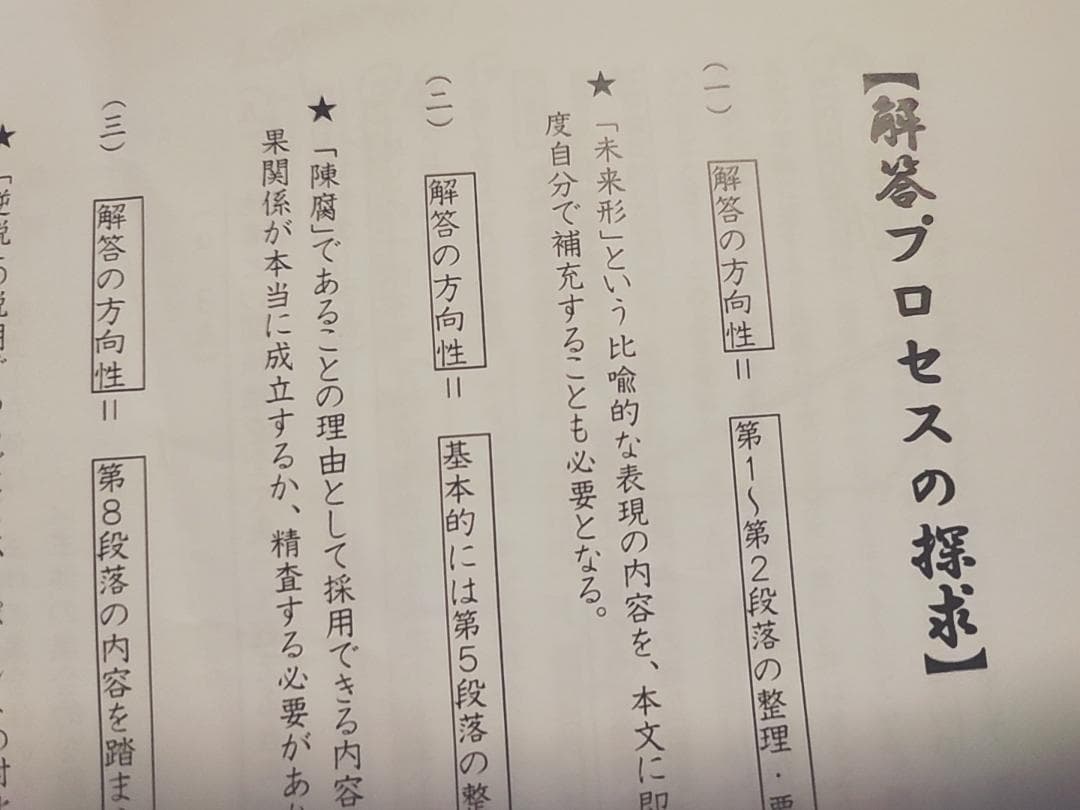 【解答プロセスの探求】
(一) 解答の方向性＝第1〜第2段落の整理・要
★「未来形」という比喩的な表現の内容を、本文に即
度自分で補充することも必要となる。
(二) 解答の方向性＝基本的には第5段落の整
★「陳腐」であることの理由として採用できる内容
果関係が本当に成立するか、精査する必要があ
(三) 解答の方向性＝第8段落の内容を踏ま
★「逆説」の説明で